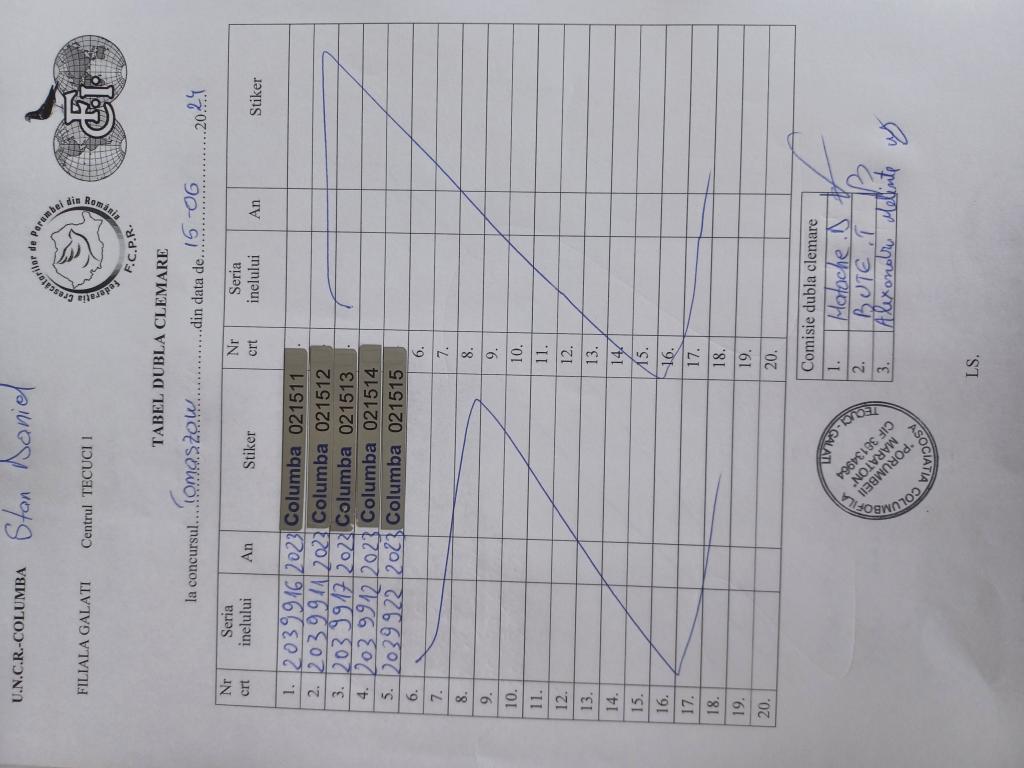 U.N.C.R.-COLUMBA Stan Daniel
FILIALA GALATI Centrul TECUCI 1
Federaţia Crescătorilor de Porumbei din România
F.C.P.R.
FCI
TABEL DUBLA CLEMARE
la concursul....Tomaszow....din data de..15-06....2024...
Nr crt Seria inelului An Stiker Nr crt Seria inelului An Stiker
1. 2039916 2023 Columba 021511 .
2. 2039911 2023 Columba 021512
3. 2039917 2023 Columba 021513 .
4. 2039912 2023 Columba 021514
5. 2039922 2023 Columba 021515
6. 6.
7. 7.
8. 8.
9. 9.
10. 10.
11. 11.
12. 12.
13. 13.
14. 14.
15. 15.
16. 16.
17. 17.
18. 18.
19. 19.
20. 20.
Comisie dubla clemare
1. Matache .D
2. BUTE .T
3. Alexandru Melinte
ASOCIATIA COLUMBOFILA
"PORUMBEII
MARATON"
CIF 36134964
TECUCI - GALATI
L.S.